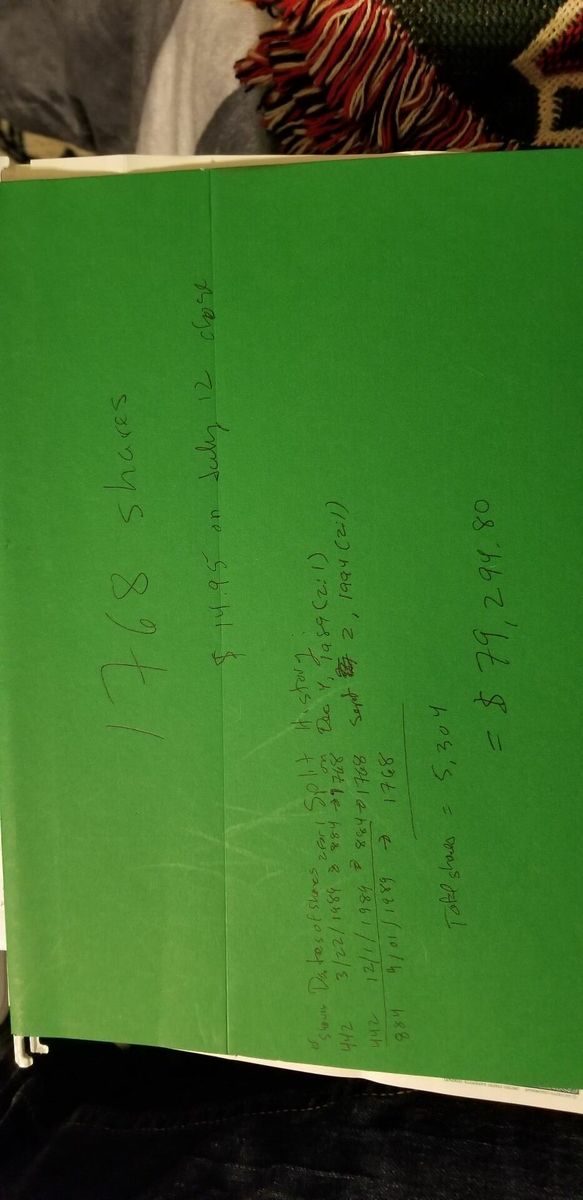 1768 shares
$ 14.95 on July 12 close
# shares Dates of shares 2 for 1 Split History
442 3/22/1989 → 884 → 1768 on Dec 4, 1989 (2:1)
442 12/1/1989 → 884 → 1768 Sept 2, 1994 (2:1)
884 4/01/1989 → 1768
Total shares = 5,304
= $ 79,294.80